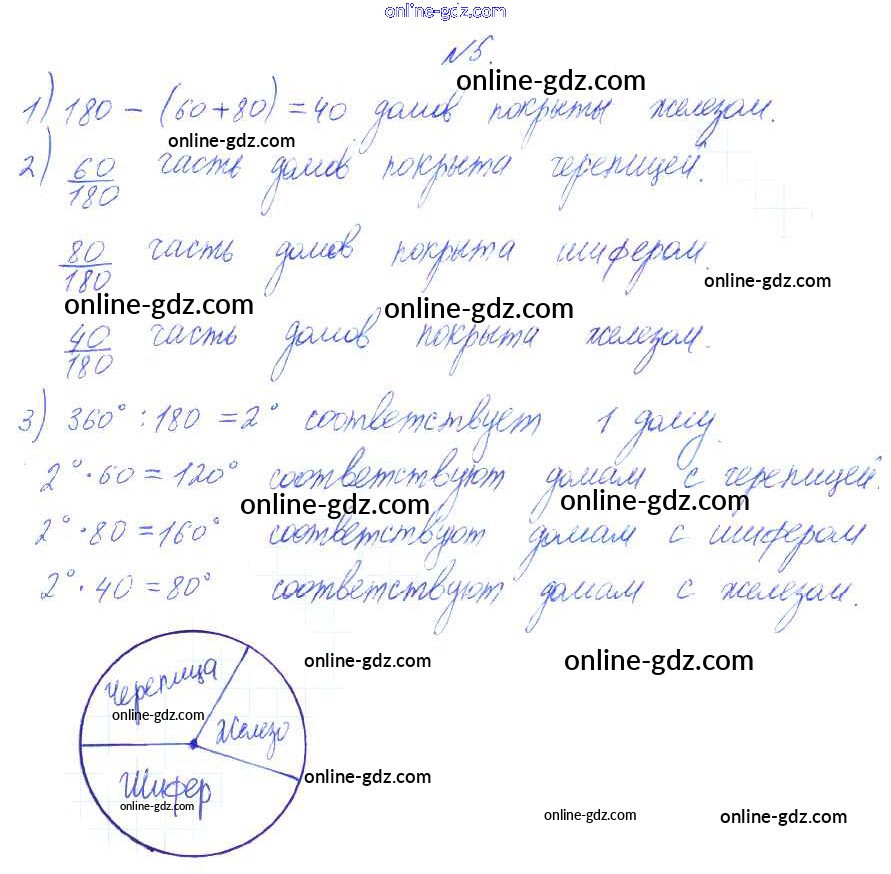 online-gdz.com
№5.
online-gdz.com
1) 180 - (60+80) = 40 домов покрыты железом.
online-gdz.com
2) 60/180 часть домов покрыта черепицей.
80/180 часть домов покрыта шифером.
online-gdz.com
online-gdz.com online-gdz.com
40/180 часть домов покрыта железом.
3) 360° : 180 = 2° соответствует 1 дому.
2° · 60 = 120° соответствуют домам с черепицей.
online-gdz.com online-gdz.com
2° · 80 = 160° соответствуют домам с шифером
2° · 40 = 80° соответствуют домам с железом.
Черепица
online-gdz.com online-gdz.com
online-gdz.com
Железо
Шифер
online-gdz.com
online-gdz.com
online-gdz.com online-gdz.com